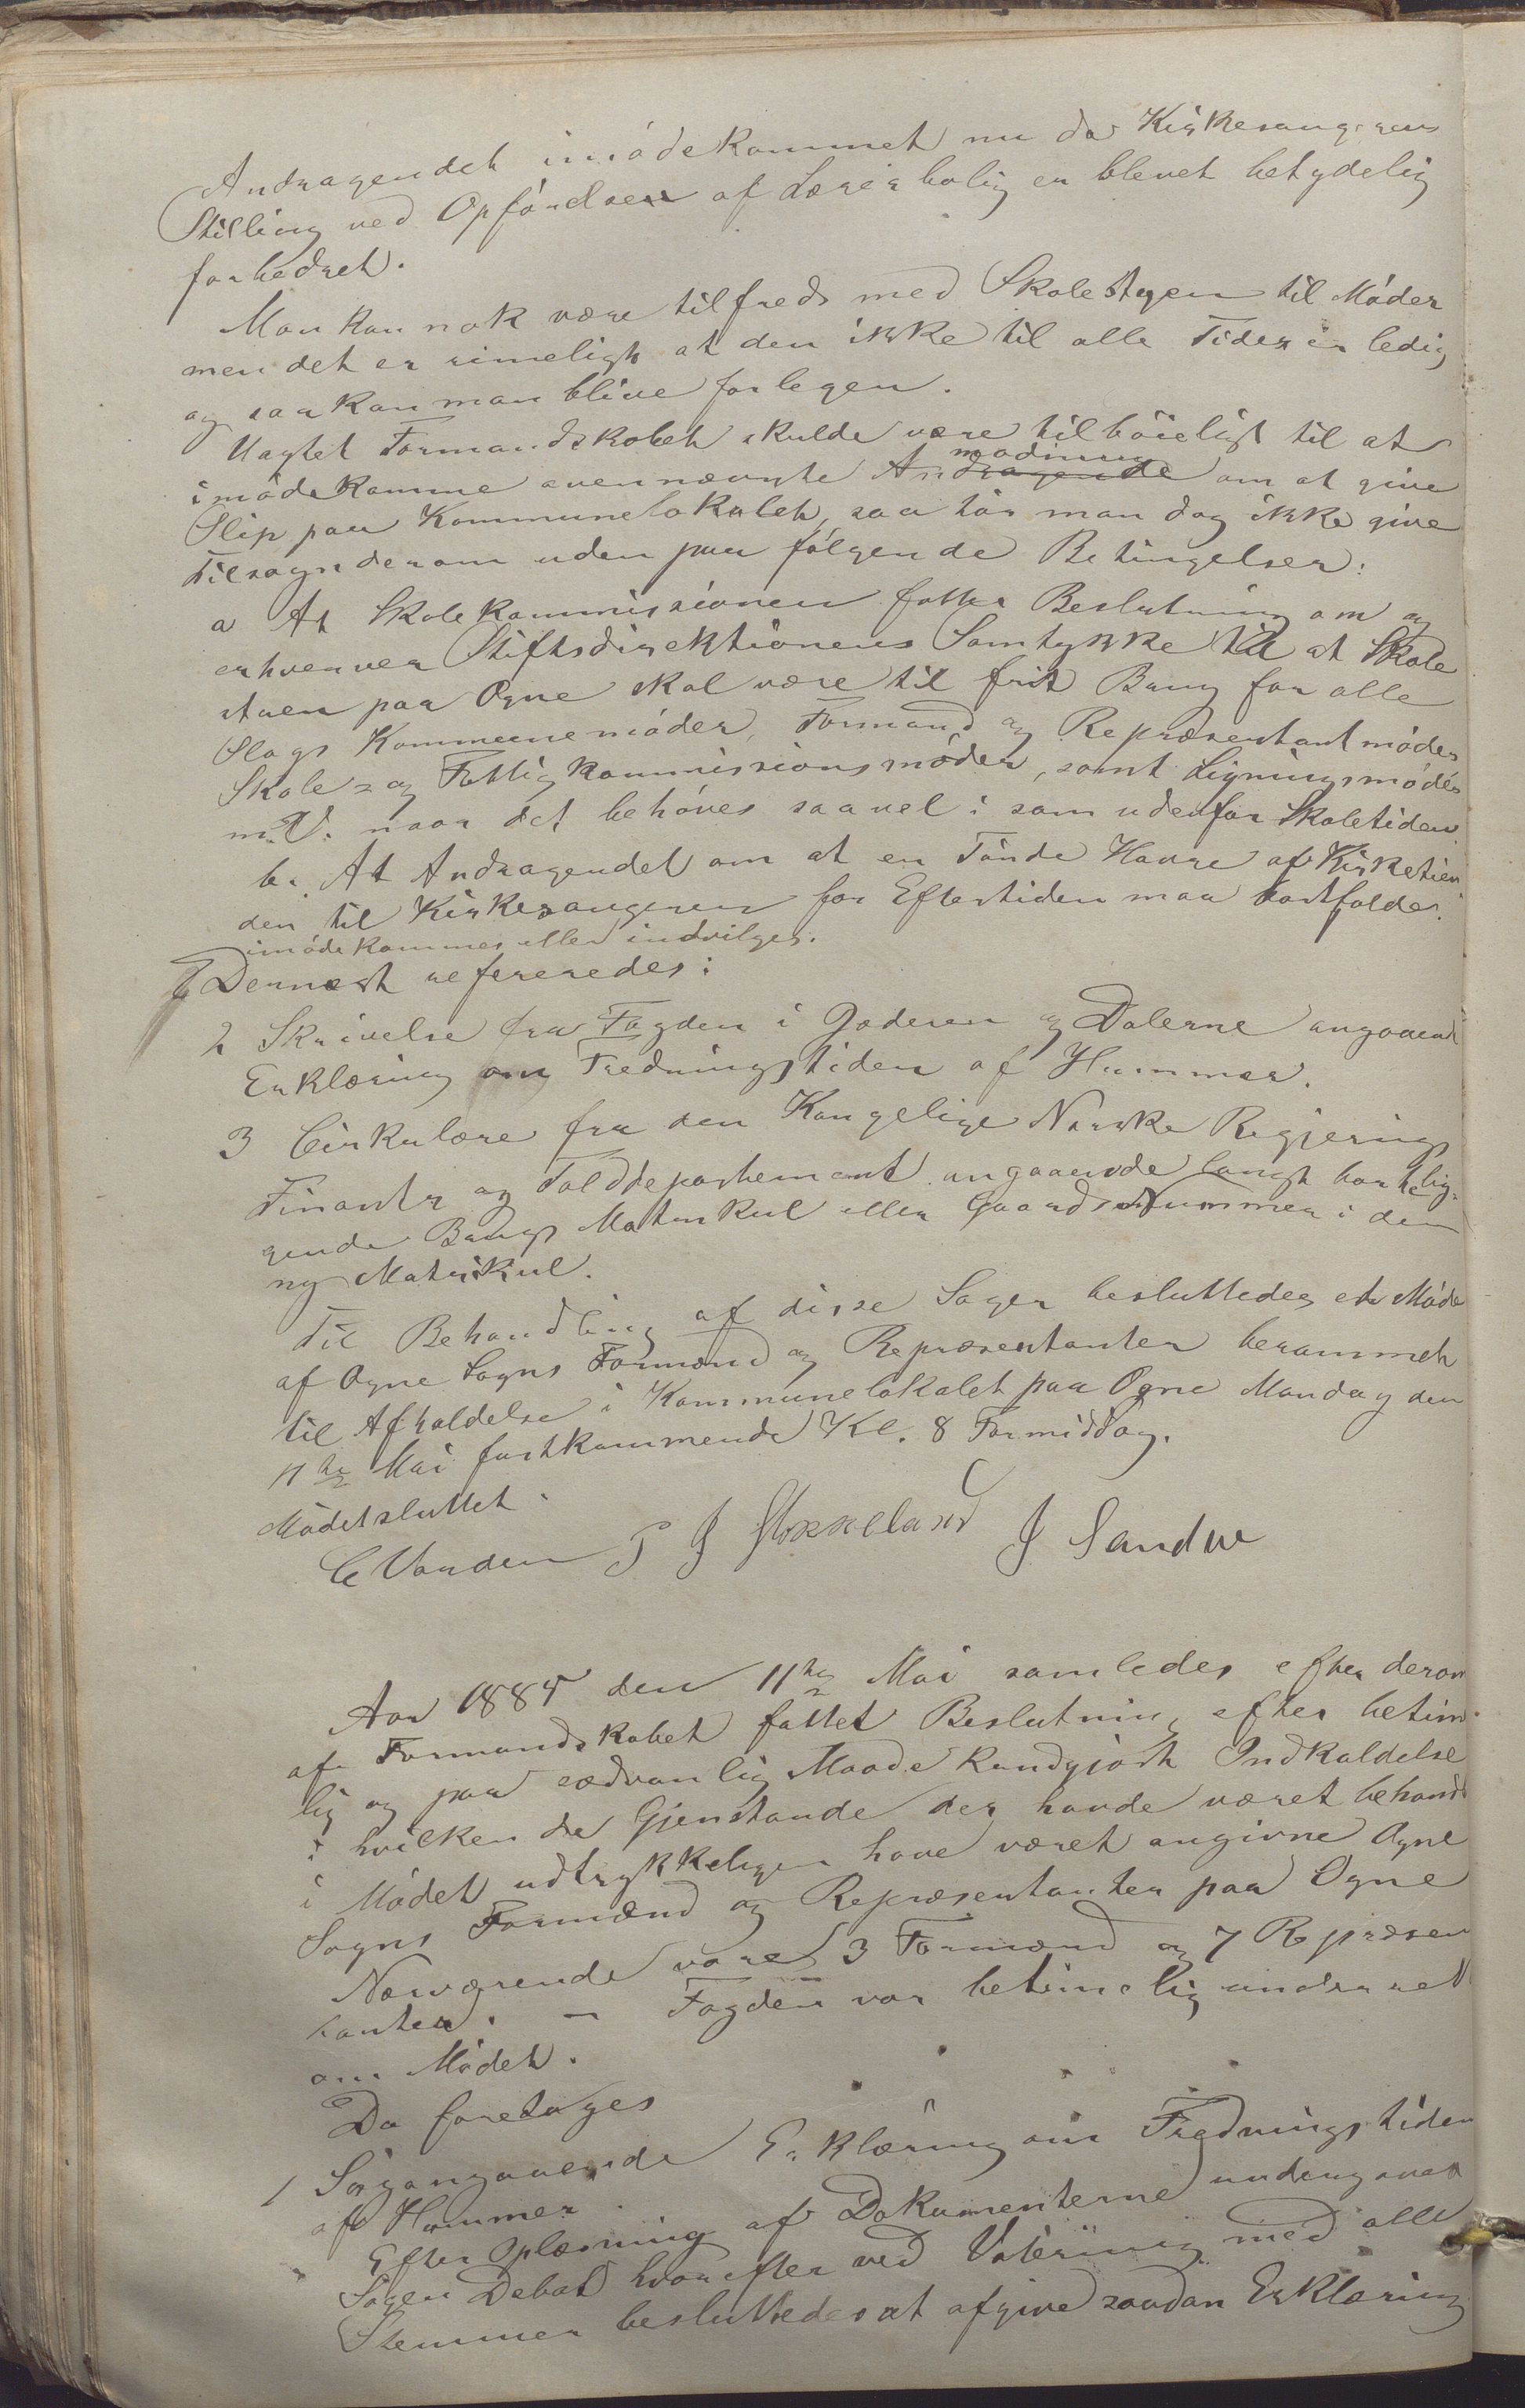 Andragendet imødekommet nu da Kirkesangerens
Stilling ved Opførelsen af Lærerbolig er blevet betydelig
forbedret.
Man kan nok være tilfreds med Skolestuen til Møder
men det er rimeligt at den ikke til alle Tider er ledig
og saa kan man blive forlegen.
Uagtet Formandskabet skulde være tilbøieligt til at
imødekomme ovennævnte Anmodning om at give
Slip paa Kommunelokalet, saa tør man dog ikke give
Tilsagn derom uden paa følgende Betingelser:
a At Skolekommissionen fatter Beslutning om og
erhverver Stiftsdirektionens Samtykke til at Skole
stuen paa Ogne skal være til frit Brug for alle
Slags Kommunemøder, Formand og Repræsentantmøder
Skole- og Fattigkommissionsmøder, samt Ligningsmøder
m.V. naar det behøves saavel i som udenfor Skoletiden.
b. At Andragendet om at en Tønde Havre af Kirketien
den til Kirkesangeren for Eftertiden maa bortfalde.
imødekommes eller indvilges.
Dernæst refereredes:
2 Skrivelse fra Fogden i Jæderen og Dalerne angaaende
Erklæring om Fredningstiden af Hummer.
3 Cirkulære fra den Kongelige Norske Regjerings
Finants og Tolddepartement angaaende langt bortlig-
gende Brugs Matrikul eller Gaards Nummer i den
ny Matrikul.
Til Behandling af disse Sager besluttedes et Møde
af Ogne Sogns Formænd og Repræsentanter berammet
til Afholdelse i Kommunelokalet paa Ogne Mandag den
11te Mai førstkommende Kl. 8 Formiddag.
Mødet sluttet.
C Vanden P J Stokkeland J Sandve
Aar 1885 den 11te Mai samledes efter derom
af Formandskabet fattet Beslutning efter betime
lig og paa sædvanlig Maade kundgjort Indkaldelse
i hvilken de Gjenstande der havde været behandl
i Mødet udtrykkeligen have været angivne Ogne
Sogns Formænd og Repræsentanter paa Ogne
Nærværende vare 3 Formænd og 7 Repræsen
tanter. - Fogden var betimelig underrett
om Mødet.
Da foretages
1 Sag angaaende Erklæring om Fredningstiden
af Hummer.
Efter Oplæsning af Dokumenterne undergaves
Sagen Debat hvorefter ved Votering med alle
Stemmer besluttedes at afgive saadan Erklæring